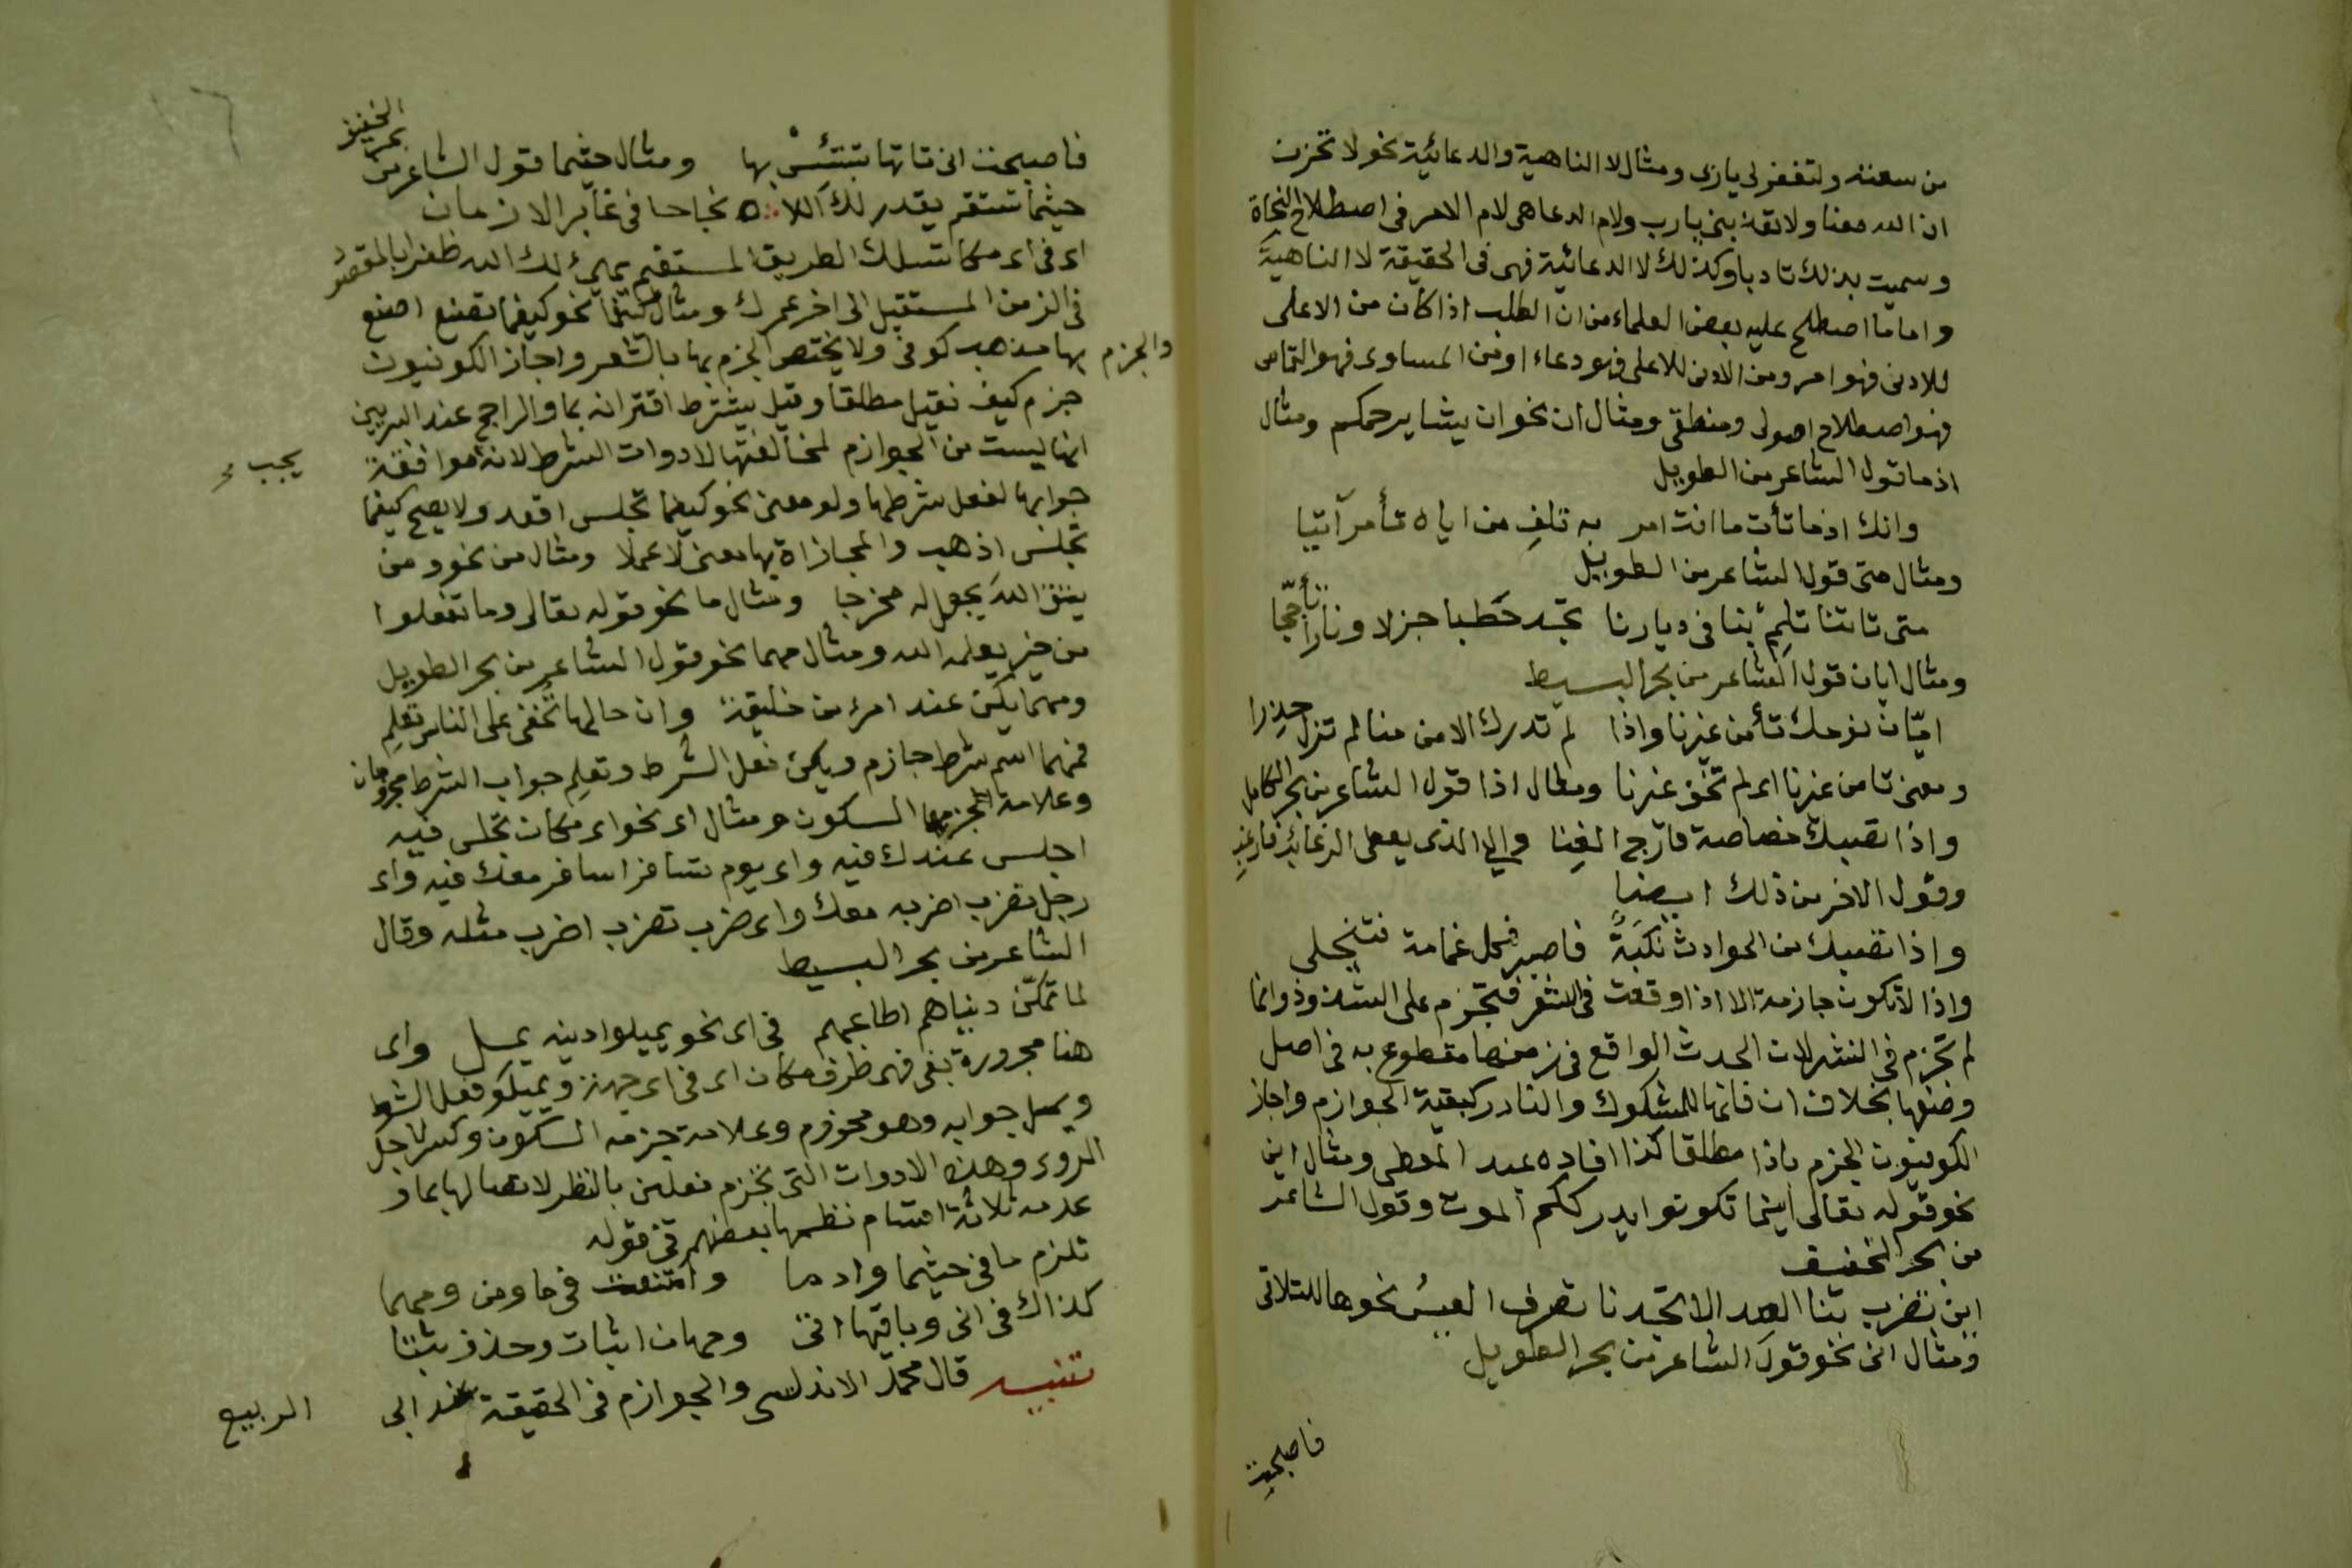 من سعته ولتغفر لى يا زى ومثال لا الناهية والدعائية نحو لا تحزن
ان الله معنا ولا تعذبنى يا رب ولام الدعا هى لام الامر فى اصطلاح النحاة
وسميت بذلك تادبا وكذلك لا الدعائية فهى فى الحقيقة لا الناهية
واما ما اصطلح عليه بعض العلماء من ان الطلب اذا كان من الاعلى
للادنى فهو امر ومن الادنى للاعلى فهو دعاء او من المساوى فهو التماس
فهو اصطلاح اصولى ومنطقى ومثال ان نحو ان يشا يرحمكم ومثال
اذما قول الشاعر من الطويل
وانك اذما تأت ما انت امر به تلف من اياه تأمر آتيا
ومثال متى قول الشاعر من الطويل
متى تاتنا تلمم بنا فى ديارنا تجد حطبا جزلا ونارا تأججا
ومثال ايان قول الشاعر من بحر البسيط
ايّان نؤمنك تأمن غيرنا واذا لم تدرك الامن منا لم تزل حذرا
ومعنى تامن غيرنا اى لم تخف غيرنا ومثال اذا قول الشاعر من بحر الكامل
واذا تصبك خصاصة فارج الغنا والى الذى يعطى الرغائب فارغب
وقول الاخر من ذلك ايضا
واذا تصبك من الحوادث نكبةٌ فاصبر فكل غمامة فتنجلى
واذا لا تكون جازمة الا اذا وقعت فى الشعر فتجزم على الشذوذ وانما
لم تجزم فى النثر لان الحدث الواقع فى زمنها مقطوع به فى اصل
وضعها بخلاف ان فانها للمشكوك والنادر كبقية الجوازم واجاز
الكوفيون الجزم باذا مطلقا كذا افاده عبد المعطى ومثال اين
نحو قوله تعالى اينما تكونوا يدرككم الموت وقول الشاعر
من بحر الخفيف
اين تضرب بنا العداة تجدنا نصرف العيس نحوها للتلاقى
ومثال انى نحو قول الشاعر من بحر الطويل
فاصبحت
فاصبحت انى تاتها تبتئس بها ومثال حيثما قول الشاعر من بحر الخفيف
حيثما تستقم يقدر لك الله نجاحا فى غابر الازمان
اى فى اى مكان تسلك الطريق المستقيم يهيئ لك الله ظفرا بالمقصود
فى الزمن المستقبل الى اخر عمرك ومثال كيفما نحو كيفما تصنع اصنع
والجزم بها مذهب كوفى ولا يختص الجزم بها بالشعر واجاز الكوفيون
جزم كيف فقيل مطلقا وقيل يشترط اقترانه بما والراجح عند البصريين
انها ليست من الجوازم لمخالفتها لادوات الشرط لانه يجب موافقة
جوابها لفعل شرطها ولو معنى نحو كيفما تجلس اقعد ولا يصح كيفما
تجلس اذهب والمجازاة بها معنى لا عملا ومثال من نحو ومن
يتق الله يجعل له مخرجا ومثال ما نحو قوله تعالى وما تفعلوا
من خير يعلمه الله ومثال مهما نحو قول الشاعر من بحر الطويل
ومهما يكن عند امرء من خليقة وان خالها تخفى على الناس تعلم
فمهما اسم شرط جازم ويكن فعل الشرط وتعلم جواب الشرط مجزومان
وعلامة الجزم السكون ومثال اى نحو اى مكان تجلس فيه
اجلس عندك فيه واى يوم تسافر اسافر معك فيه واى
رجل تضرب اضربه معك واى ضرب تضرب اضرب مثله وقال
الشاعر من بحر البسيط
لما تمكّن دنياهم اطاعهم فى اى نحو يميلوا دينه يمل واى
هنا مجرورة بفى فهى ظرف مكان اى فى اى جهة ويميلوا فعل الشرط
ويمل جوابه وهو مجزوم وعلامة جزمه السكون وكسر لاجل
الروى وهذه الادوات التى تجزم فعلين بالنظر لاتصالها بما و
عدمه ثلاثة اقسام نظمها بعضهم فى قوله
تلزم ما فى حيثما واذما وامتنعت فى ما ومن ومهما
كذاك فى انى وباقيها اتى وجهان اثبات وحذف ثبتا
تنبيه قال محمد الاندلسى والجوازم فى الحقيقة عند ابى
الربيع